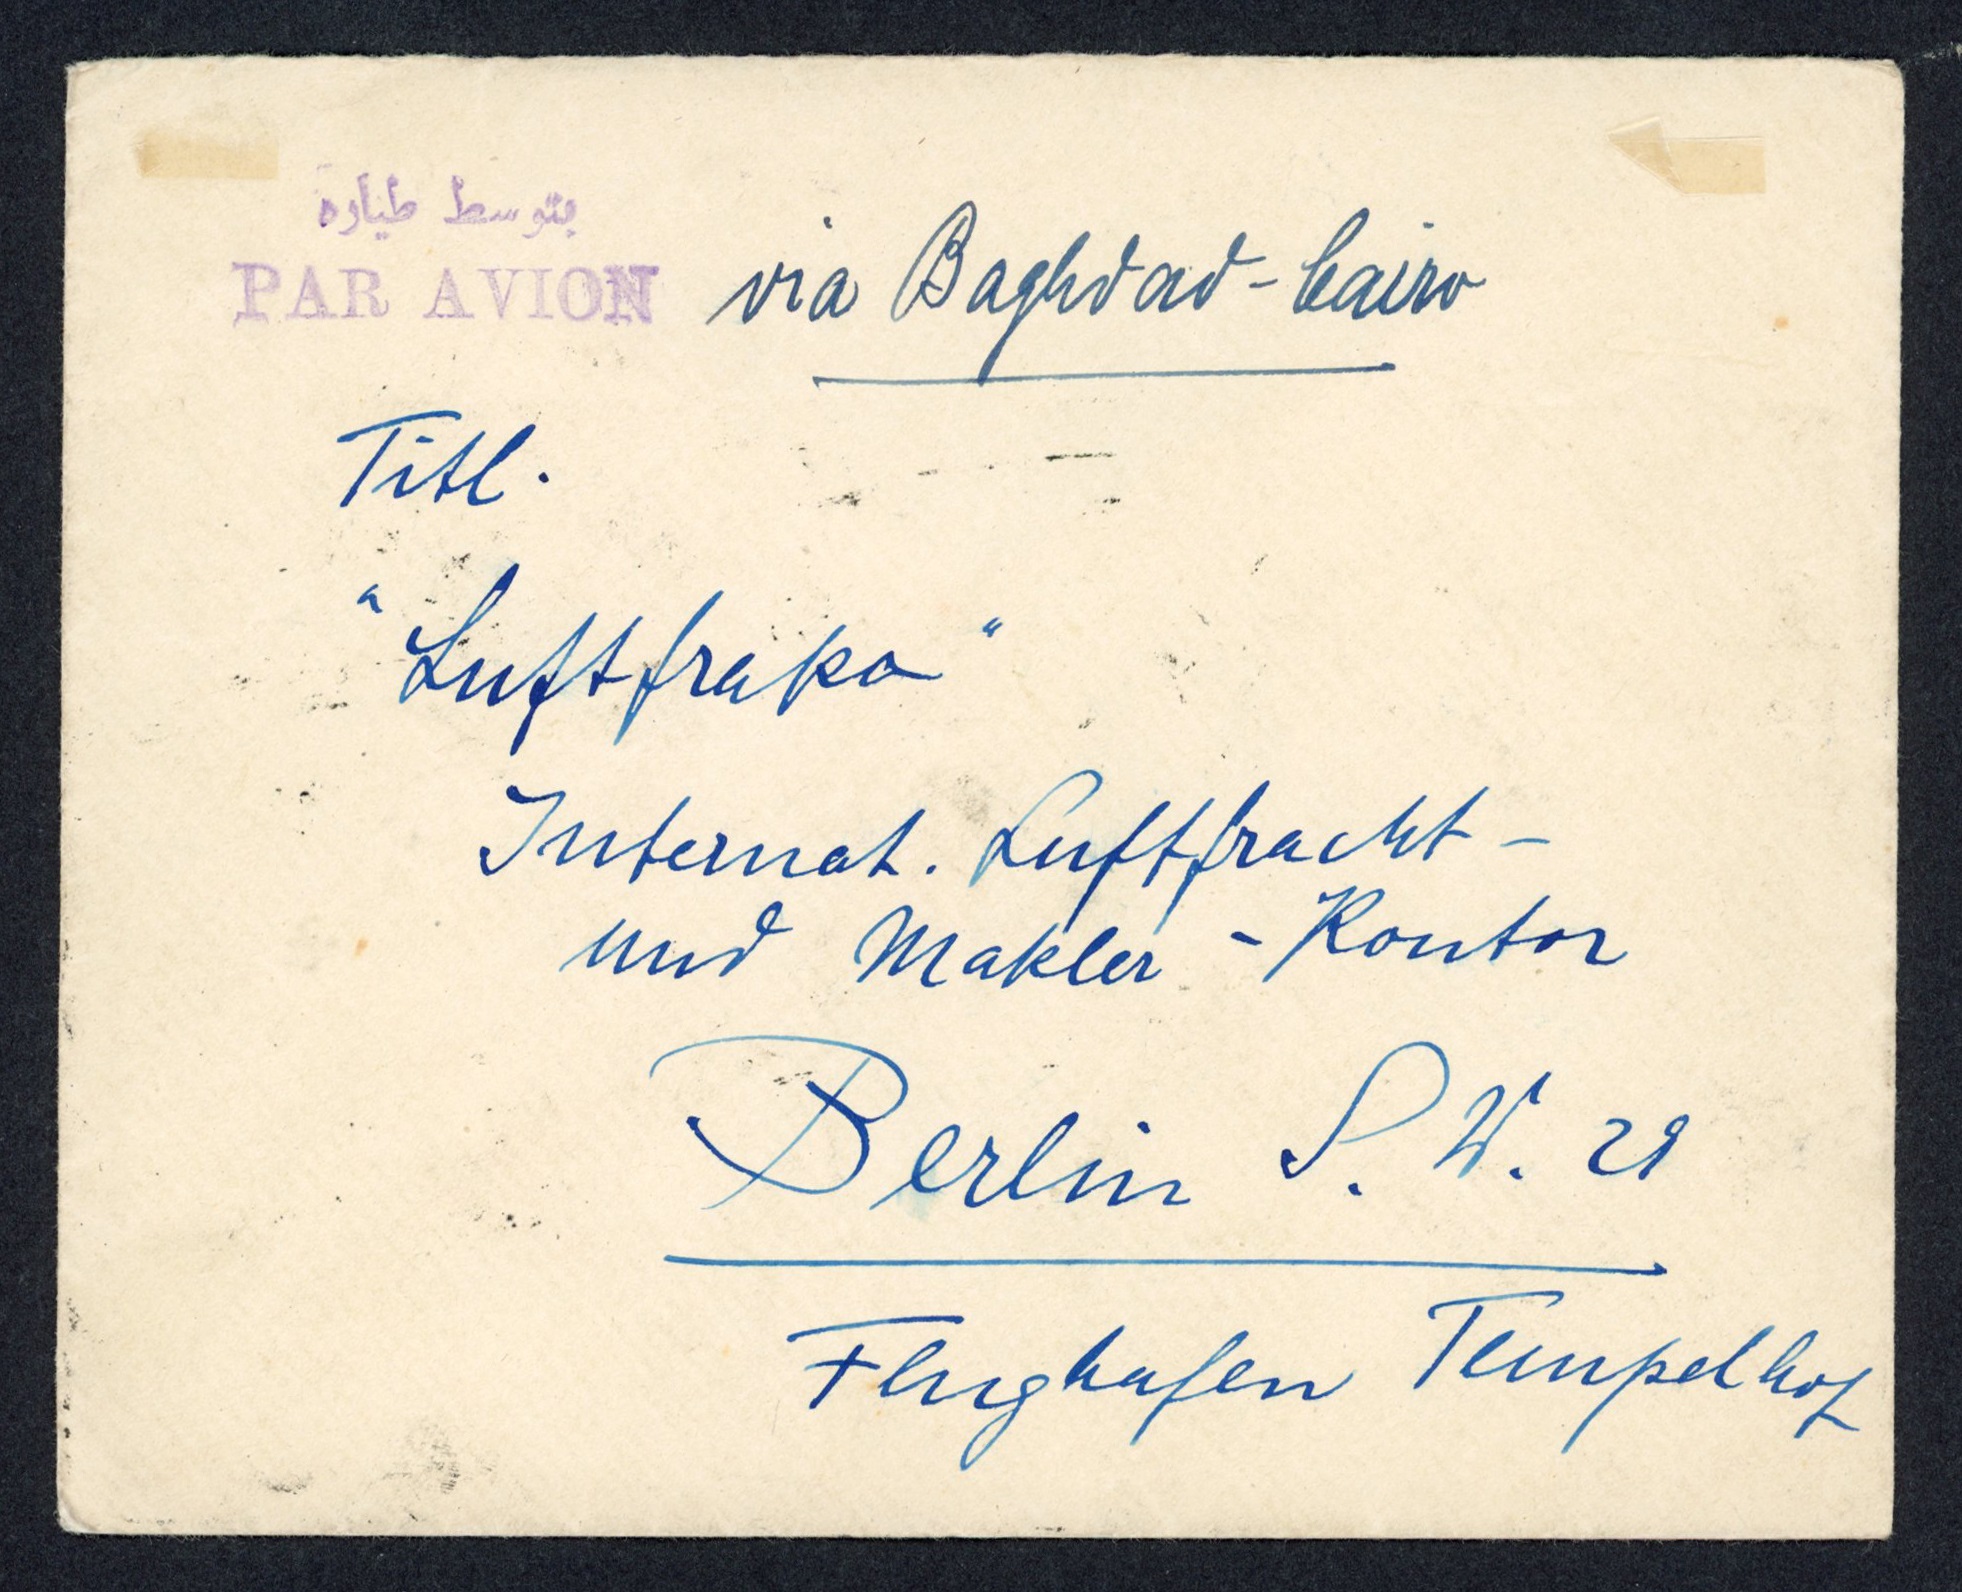 بتوسط طیاره
PAR AVION via Baghdad-Cairo
Titl.
"Luftfrako"
Internat. Luftfracht-
und Makler-Kontor
Berlin S. W. 29
Flughafen Tempelhof